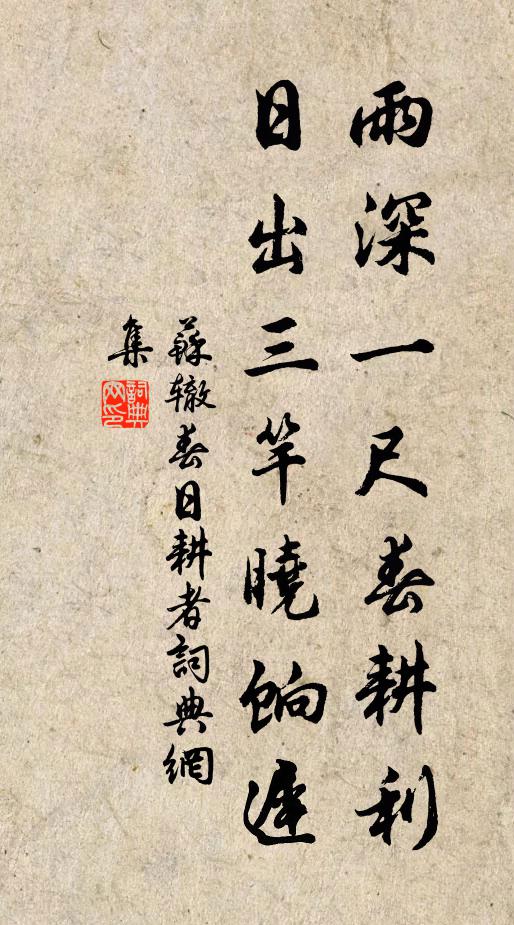 雨深一尺春耕利
日出三竿曉餉遲
蘇辙春日耕者詞典網
集
詞典
网印